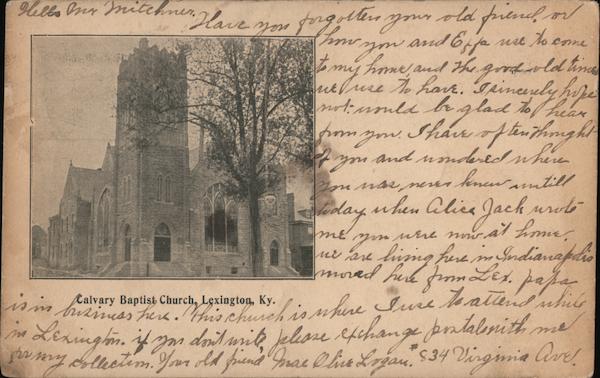 Hello Mr Mitchner.
Have you forgotten your old friend, or
how you and Effa use to come
to my home, and the good old times
we use to have. I sincerely hope
not. would be glad to hear
from you. I have often thought
of you and wondered where
you was, never knew untill
today when Alice Jack wrote
me you were now at home.
we are living here in Indianapolis
moved here from Lex. papa
Calvary Baptist Church, Lexington, Ky.
is in business here. This church is where I use to attend while
in Lexington. if you don't write, please exchange postals with me
for my collection. Your old friend Mae Olive Logan. #834 Virginia Ave.